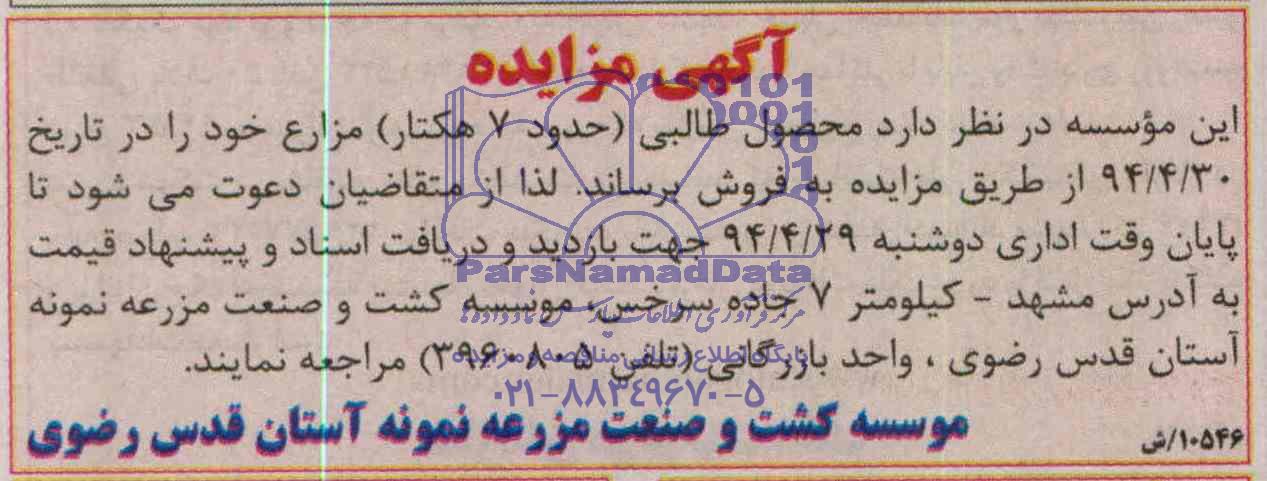 آگهی مزایده
این مؤسسه در نظر دارد محصول طالبی (حدود ۷ هکتار) مزارع خود را در تاریخ
۹۴/۴/۳۰ از طریق مزایده به فروش برساند. لذا از متقاضیان دعوت می شود تا
پایان وقت اداری دوشنبه ۹۴/۴/۲۹ جهت بازدید و دریافت اسناد و پیشنهاد قیمت
ParsNamadData
به آدرس مشهد - کیلومتر ۷ جاده سرخس، موسسه کشت و صنعت مزرعه نمونه
آستان قدس رضوی ، واحد بازرگانی (تلفن ۵-۳۹۶۰۸۰) مراجعه نمایند.
۰۲۱-۸۸۳۴۹۶۷۰-۵
موسسه کشت و صنعت مزرعه نمونه آستان قدس رضوی
۱۰۵۴۶/ش